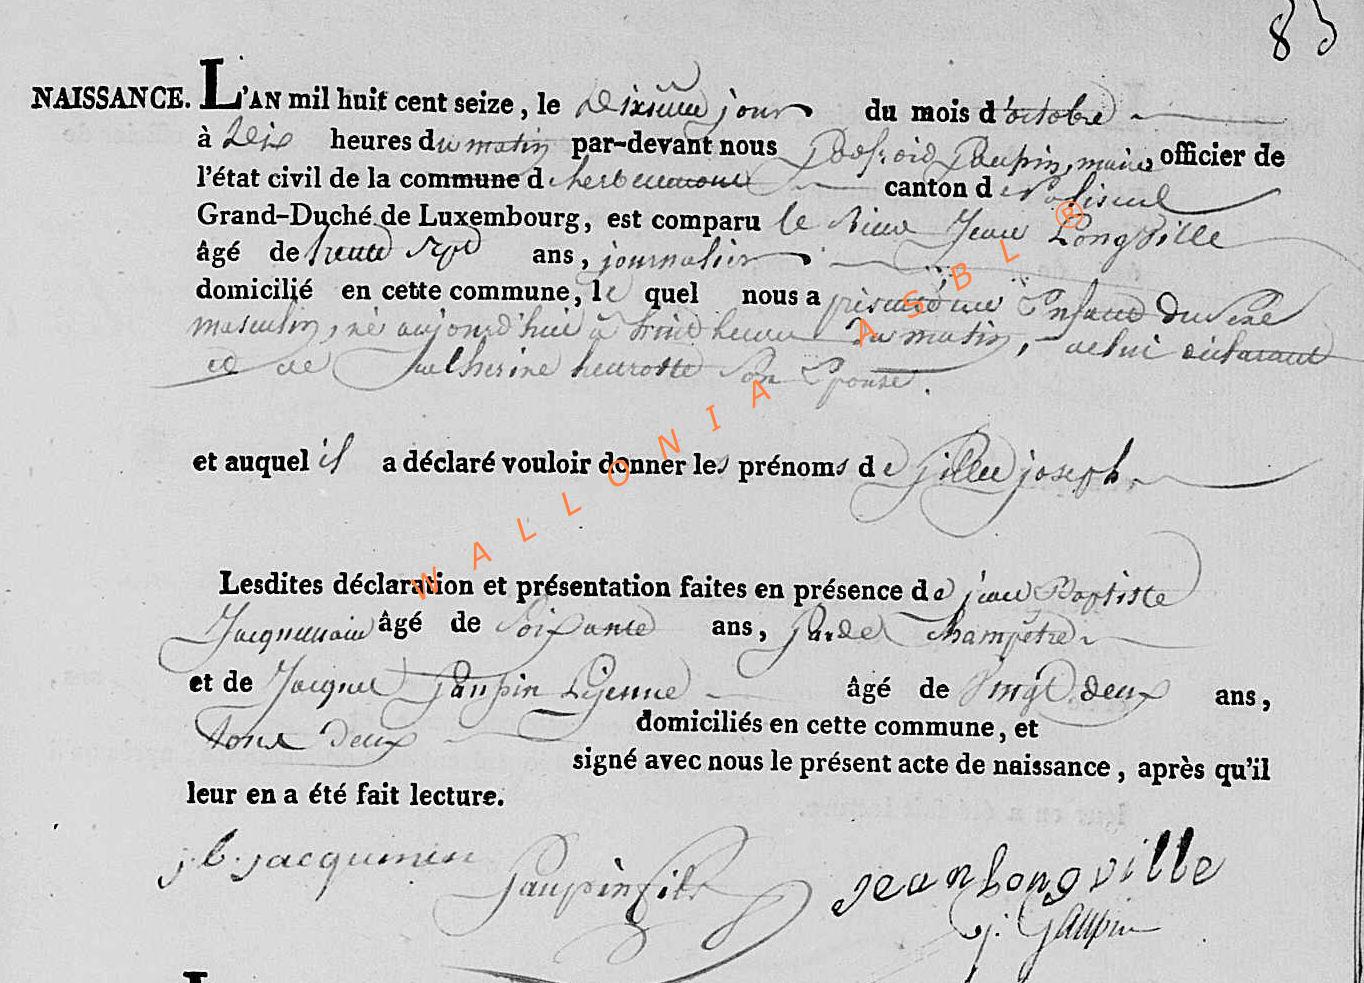 83
NAISSANCE. L'AN mil huit cent seize, le dixieme jour du mois d'octobre
à dix heures du matin par-devant nous Godfroid Gaupin, maire officier de
l'état civil de la commune d'herbeumont canton de Paliseul
Grand-Duché de Luxembourg, est comparu le Sieur Jean Longville
âgé de trente sept ans, journalier
domicilié en cette commune, le quel nous a présenté un Enfant Du Sexe
masculin, né aujourd'hui à heures Du matin, de lui déclarant
et de Catherine son Epouse.
et auquel il a déclaré vouloir donner les prénoms de Gille joseph,
Lesdites déclaration et présentation faites en présence de jean Baptiste
Jacquemain âgé de Soixante ans, garde Champêtre
et de Jacque Gaupin Lejeune âgé de Vingt deux ans,
tous deux domiciliés en cette commune, et
signé avec nous le présent acte de naissance, après qu'il
leur en a été fait lecture.
j. b. jacquemin Gaupin fils jean Longville
j. Gaupin
WALLONIA ASBL ®